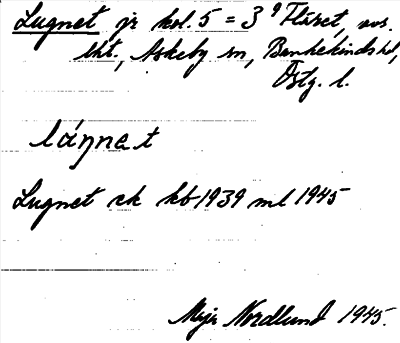 Lugnet jr kol. 5 = 3⁹ Fläret, avs.
skt., Askeby sn, Bankekinds hd,
Östg. l.
láŋnet
Lugnet ek kb 1939 ml 1945
Nordlund 1945.